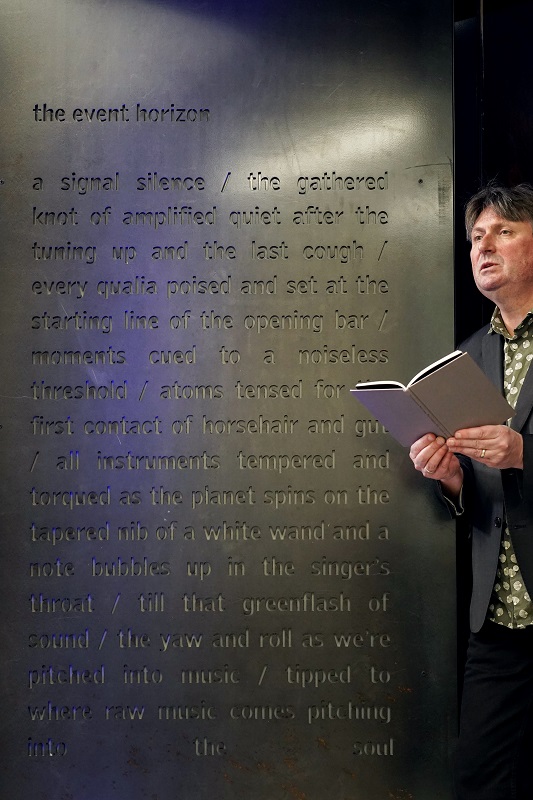 the event horizon
a signal silence / the gathered
knot of amplified quiet after the
tuning up and the last cough /
every qualia poised and set at the
starting line of the opening bar /
moments cued to a noiseless
threshold / atoms tensed for
first contact of horsehair and gut
/ all instruments tempered and
torqued as the planet spins on the
tapered nib of a white wand and a
note bubbles up in the singer's
throat / till that greenflash of
sound / the yaw and roll as we're
pitched into music / tipped to
where raw music comes pitching
into the soul